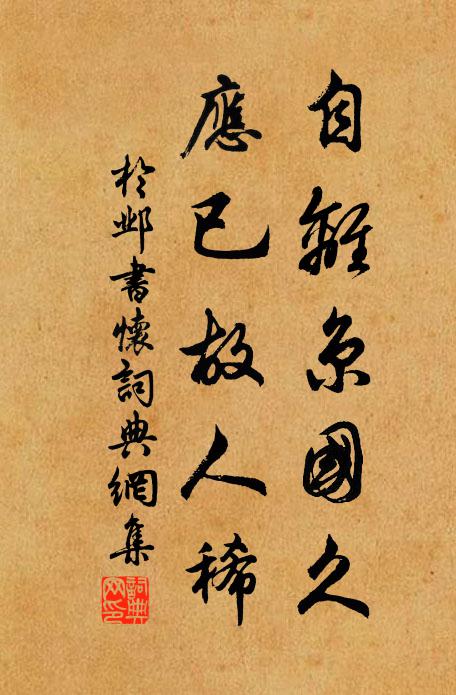 自離京國久
應已故人稀
於邺書懷詞典網集
詞典
网印